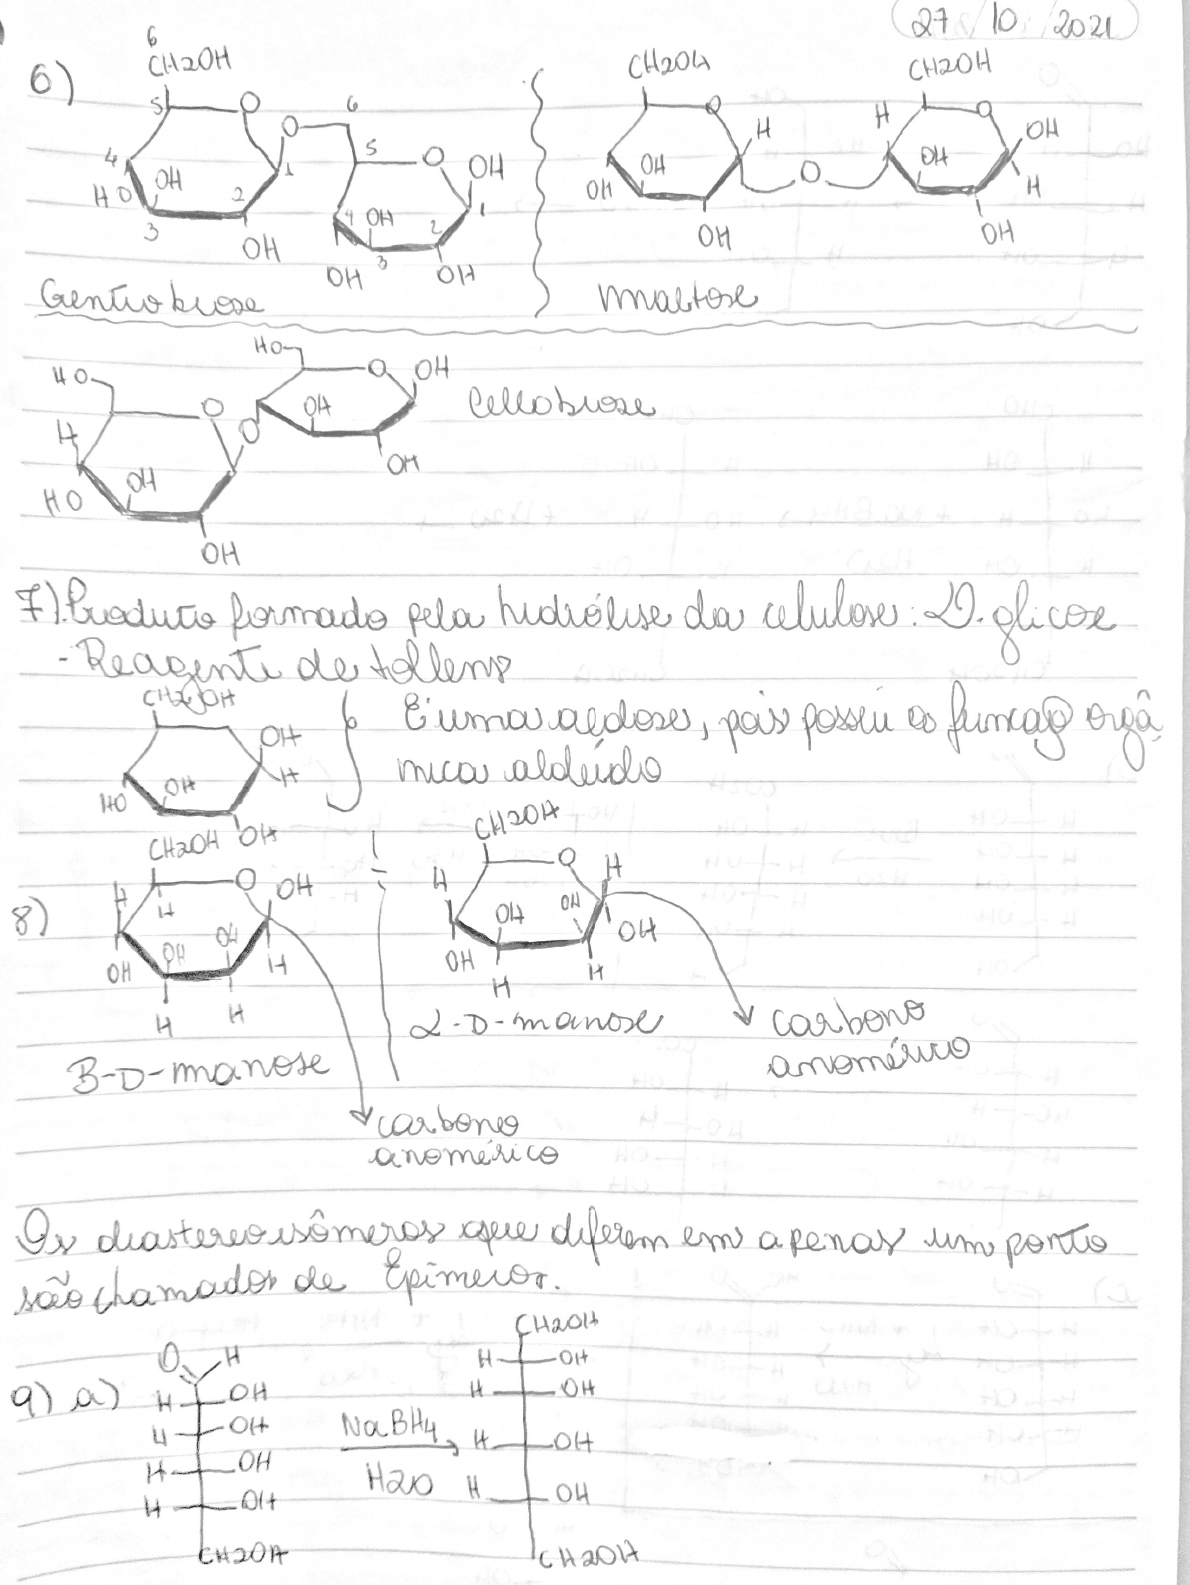 27/10/2021
6)
6
CH2OH
5 O O 6
4 HO OH 2 1 5 O OH
3 OH 4 OH 2 1
OH 3 OH
Gentiobiose
CH2OH CH2OH
O H H O OH
OH OH O OH H
OH OH
Maltose
HO O OH
HO O OH
H O OH
HO OH
OH
Cellobiose
7) Produto formado pela hidrólise da celulose: D-glicose
- Reagente de tollens
CH2OH
OH
HO OH H
OH
É uma aldose, pois possui a função orgâ
nica aldeído
8)
CH2OH
H H O OH
OH OH OH H
H H
B-D-manose
carbono
anomérico
CH2OH
H O H
OH OH OH OH
H H
α-D-manose
carbono
anomérico
Os diastereoisômeros que diferem em apenas um ponto
são chamados de Epímeros.
9) a)
O H
H OH
H OH
H OH
H OH
CH2OH
NaBH4
H2O
CH2OH
H OH
H OH
H OH
H OH
CH2OH